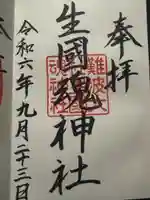 奉拝
生國魂神社
令和六年九月二十三日